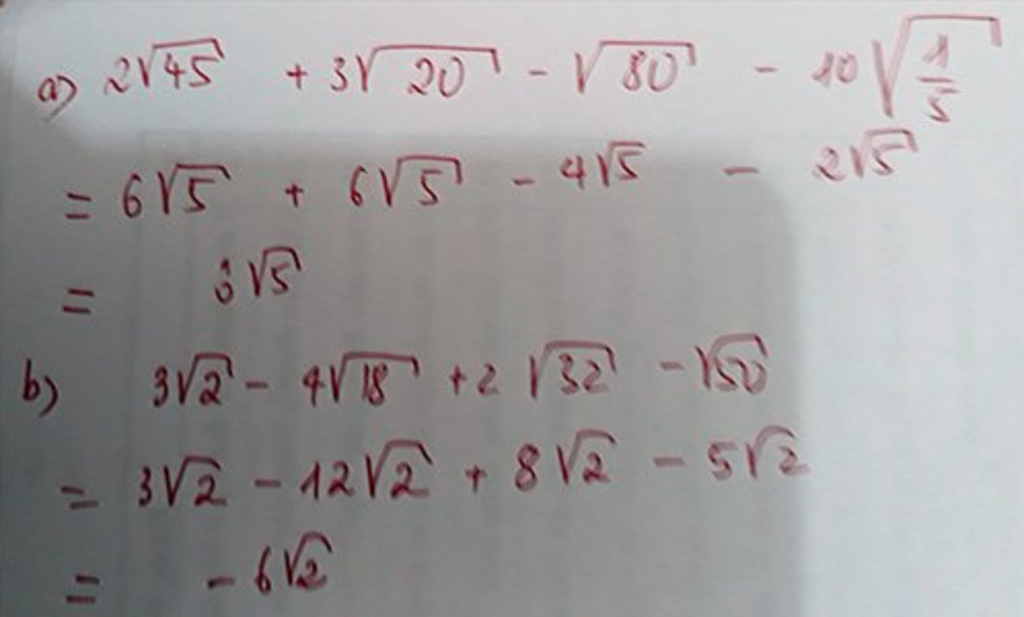 a) 2√45 + 3√20 - √80 - 10√(1/5)
= 6√5 + 6√5 - 4√5 - 2√5
= 6√5
b) 3√2 - 4√18 + 2√32 - √50
= 3√2 - 12√2 + 8√2 - 5√2
= - 6√2